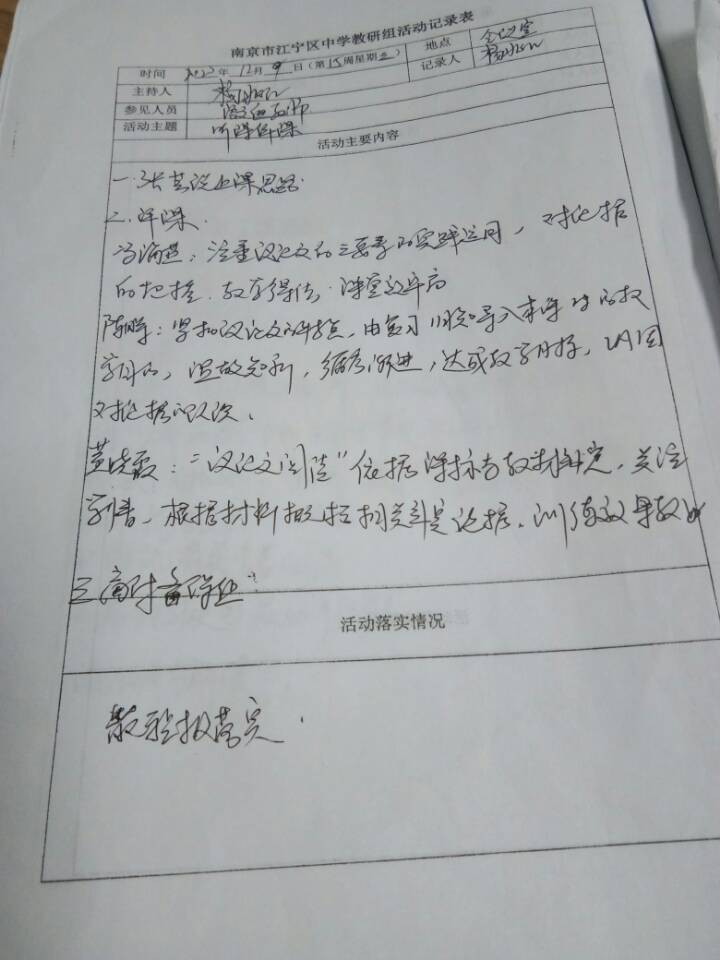 南京市江宁区中学教研组活动记录表
时间 年12月9日(第15周星期五) 地点 会议室
主持人 记录人
参见人员 语文组教师
活动主题 听课评课
活动主要内容
一、张 说上课思路
二、评课.
冯海燕:注重议论文的三要素的实践运用,对论据
的把握.教学得法.课堂效率高
陈 :紧扣议论文的特点,由复习旧知导入本课时的教
学目的,温故知新,循序渐进,达成教学目标,巩固
对论据的认识.
黄晓霞:“议论文阅读”依据课标与教材特点,关注
学情,根据材料概括相关事实论据.训练效果较好
三、商讨备课组
活动落实情况
教研组落实.